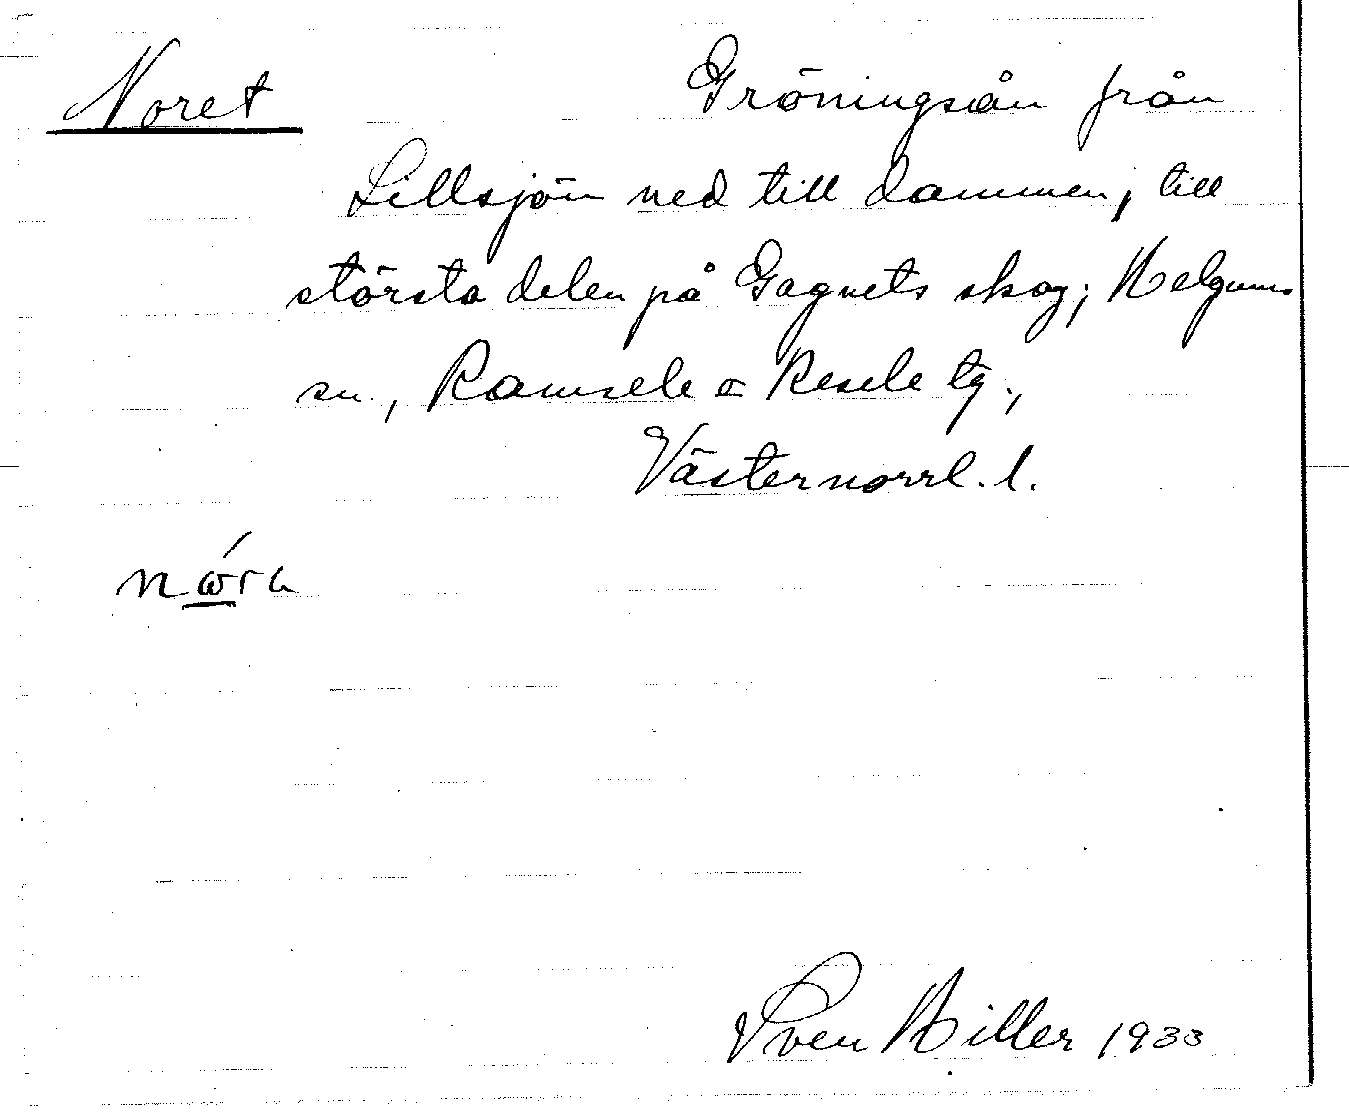 Noret Gröningsån från
Lillsjön ned till dammen, till
största delen på Gagnets skog; Helgums
sn., Ramsele o Resele tg.,
Västernorrl. l.
Sven Hiller 1933